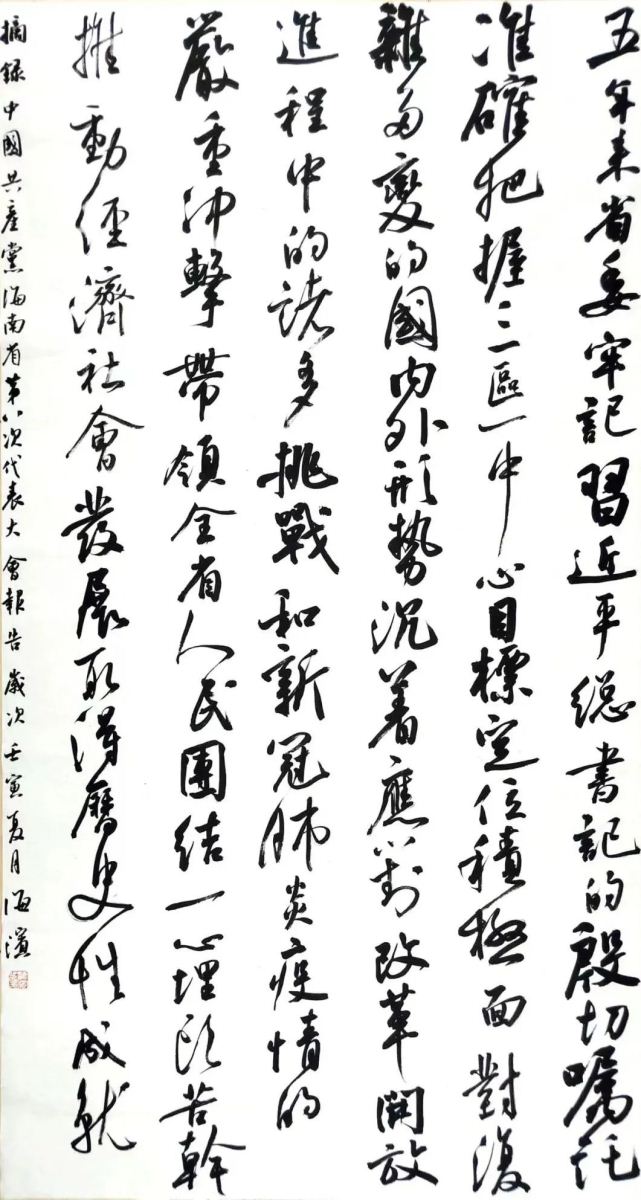 五年来省委牢記習近平總書記的殷切囑託
准確把握三區一中心目標定位積極面對復
雜多變的國内外形勢沉着應對改革開放
進程中的諸多挑戰和新冠肺炎疫情的
嚴重沖擊帶領全省人民團結一心埋头苦幹
推動經濟社會發展取得歷史性成就
摘録中國共産黨海南省第八次代表大會報告歲次壬寅夏月海濱